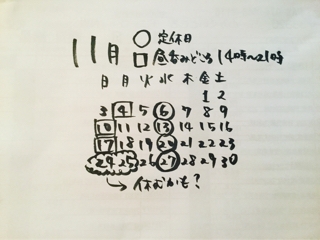 11月
○ 定休日
□ 昼呑みどころ 14時〜21時
日 月 火 水 木 金 土
1 2
3 4 5 6 7 8 9
10 11 12 13 14 15 16
17 18 19 20 21 22 23
24 25 26 27 28 29 30
→ 休むかも?